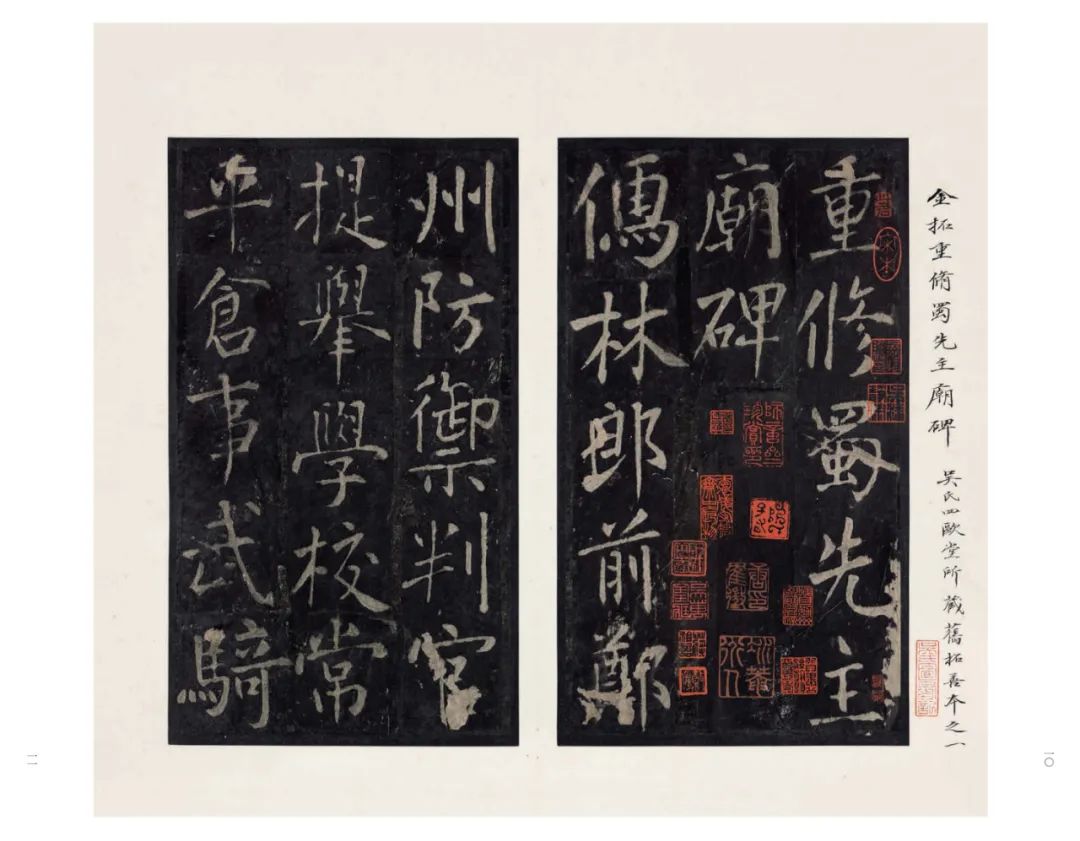 一〇
金拓重脩蜀先主廟碑 吳氏四歐堂所藏舊拓善本之一
重修蜀先主
廟碑
儒林郎前鄭
州防禦判官
提舉學校常
平倉事武騎
一一